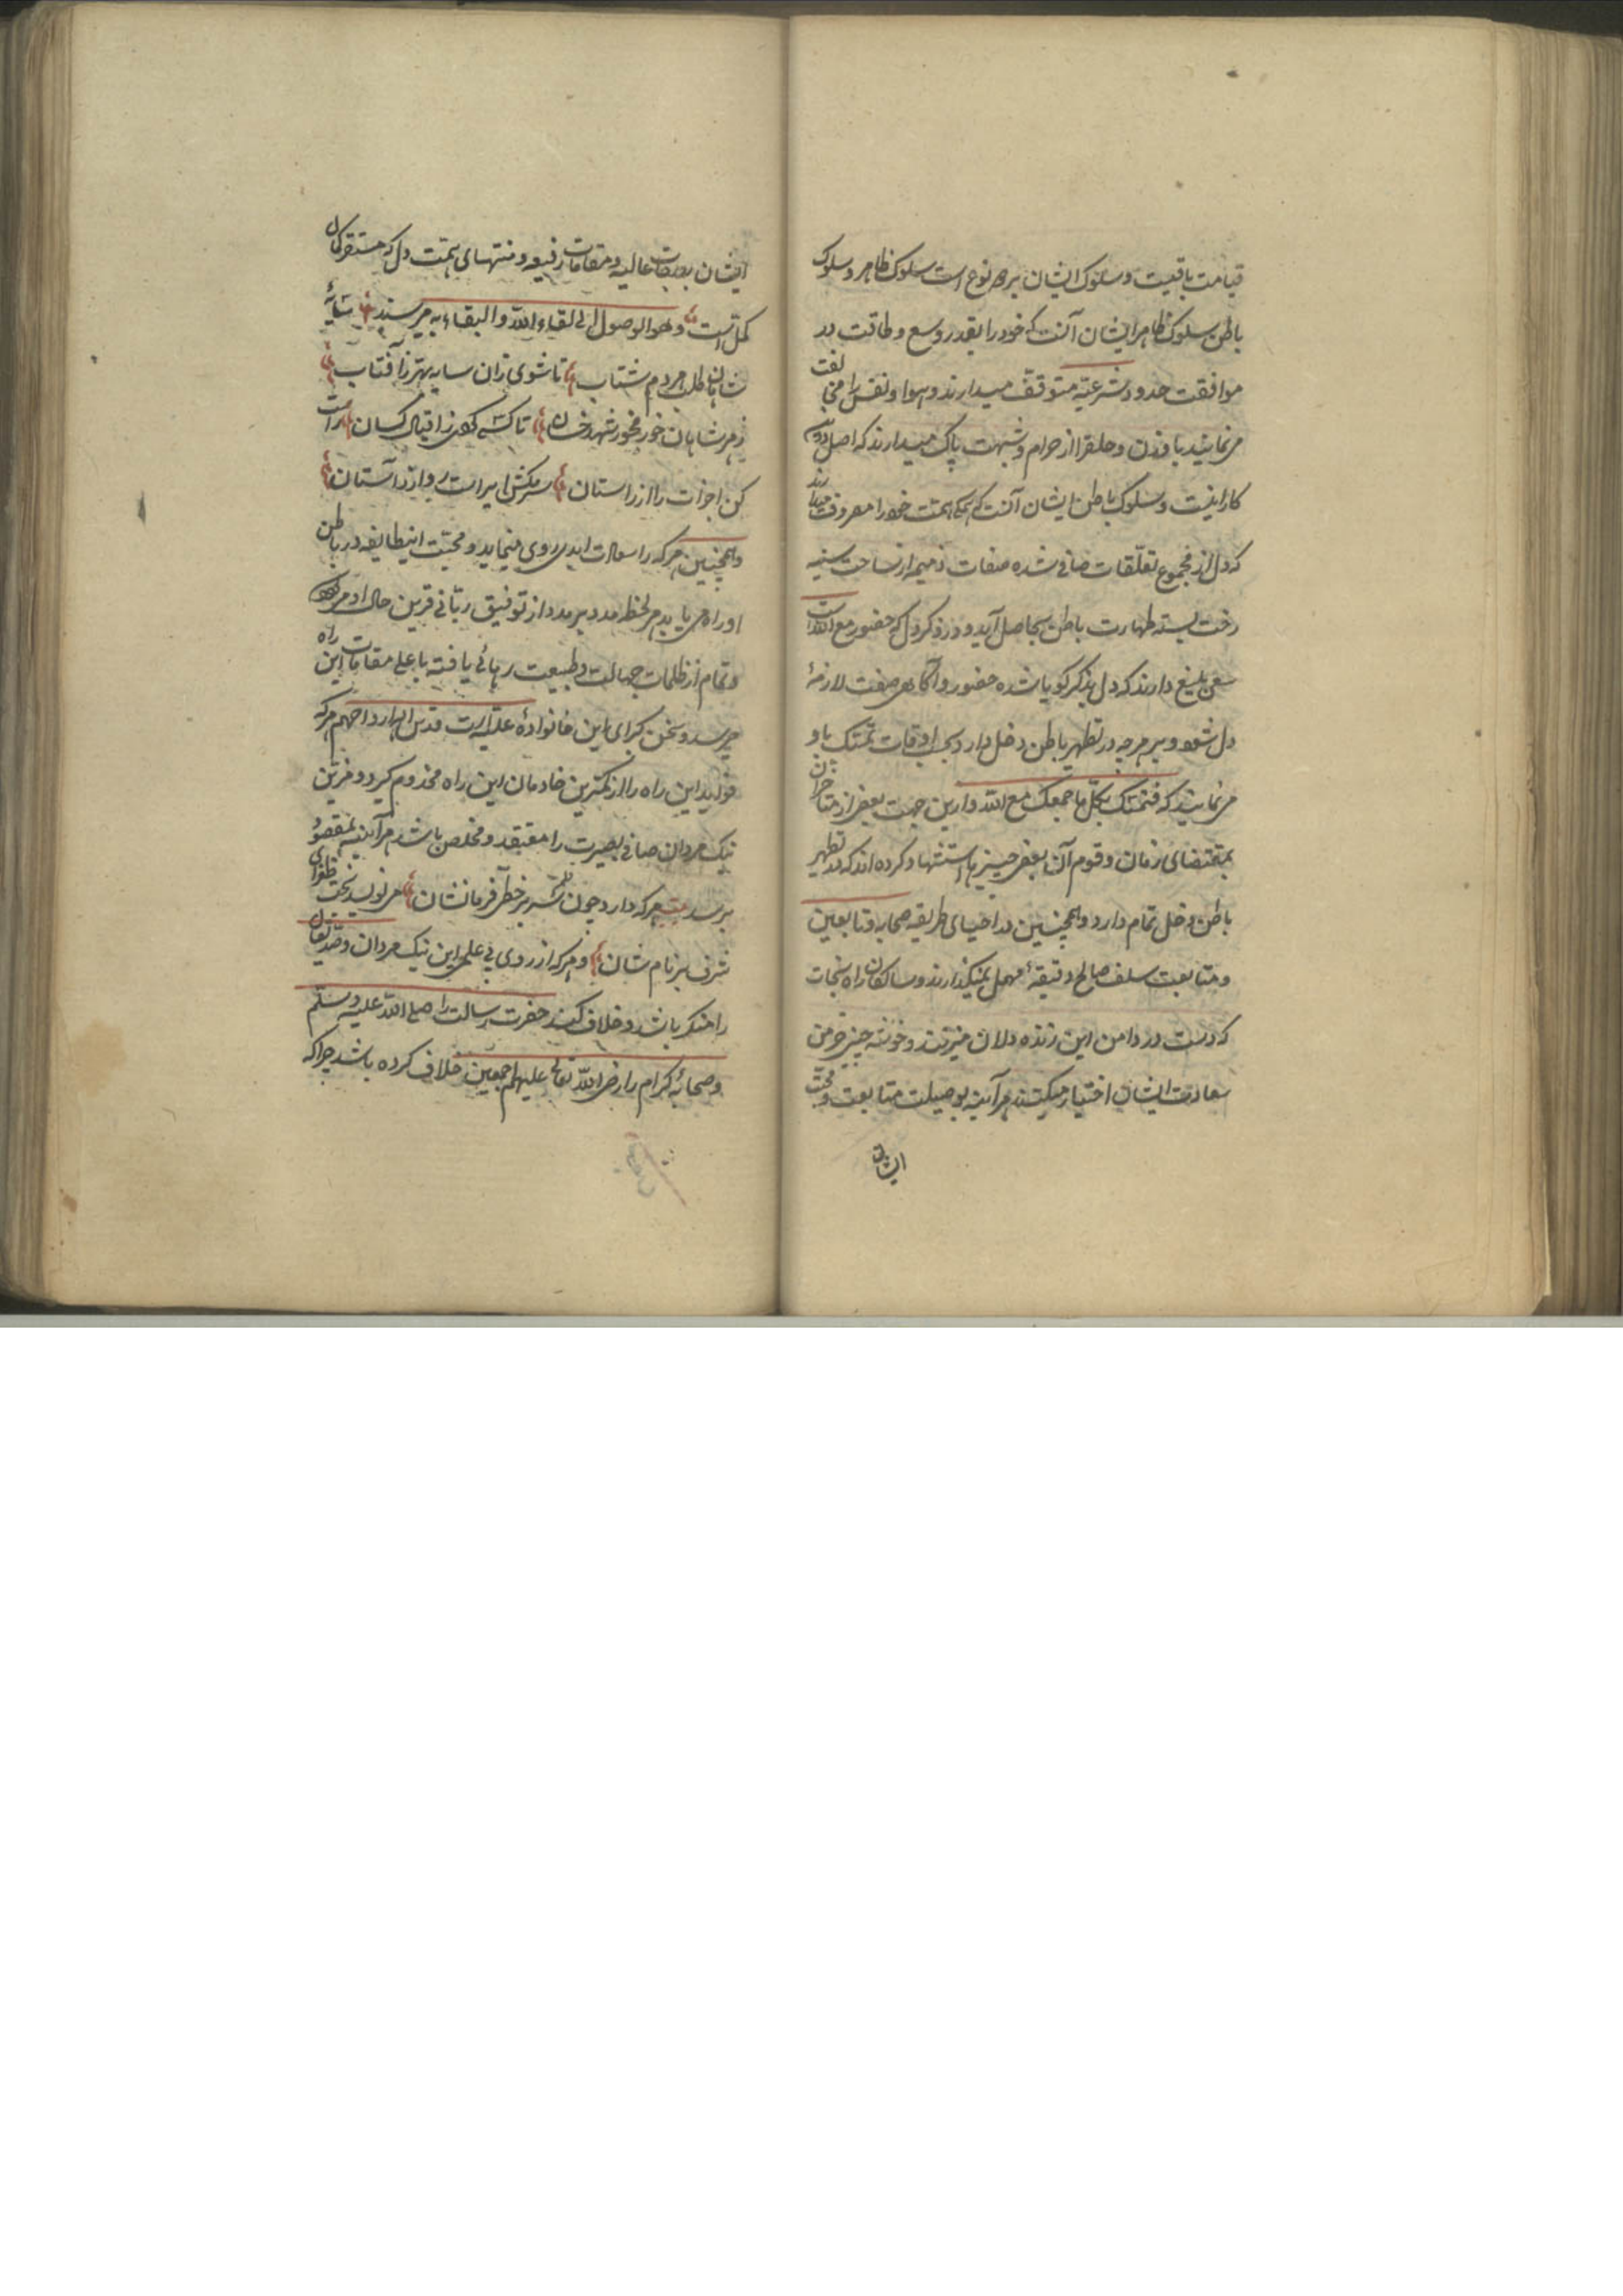 قیامت باقیست و سلوک ایشان بر دو نوع است سلوک ظاهر و سلوک
باطن سلوک ظاهر ایشان آنست که خود را بقدر وسع و طاقت در
موافقت حدود شرعیّه متوقّف میدارند و هوا و نفس را مخالفت
می نمایند با و حلق را از حرام و شبهت پاک میدارند که اصل
کار اینست و سلوک باطن ایشان آنست که همت خود را مصروف میدارند
که دل از مجموع تعلّقات صافی شده صفات ذمیمه از ساحت سینه
رخت بسته طهارت باطن بحاصل آید و در ذکر دل که حضور مع الله است
سعی بلیغ دارند که دل بذکر کویا شده حضور و آکاهی صفت لازمهٔ
دل شود و بهر چه در تطهیر باطن دخل دارد اوقات تمسّک باو
می نمایند که فتمسّک بکل ما جمعک مع الله و ازین جهت بعضی از متاخران
بمقتضای زمان و قوم آن بعضی چیزها استشهاد کرده اند که در تطهیر
باطن دخل تمام دارد و همچنین در احیای طریقه صحابه و تابعین
و متابعت سلف صالح دقیقهٔ مهمل نمیکذارند و سالکان راه نجات
که دست در دامن این زنده دلان میزنند و خوشه چینی خرمن
سعادت ایشان اختیار میکنند هر آینه بوسیلت متابعت و محبّت
ایشان
ایشان بدرجات عالیه و مقامات رفیعه و منتهای همت دل که
کمّل است و هو الوصول الی لقاء الله و البقاء به میرسند سایهٔ
شاهان طلب هر دم شتاب تا شوی زان سایه بهتر ز آفتاب
زهر شاهان خور مخور شهد خسان تا کسی کردی ز اقبال کسان راست
کن اجزات را از راستان سر مکش ای راست رو از آستان
و همچنین هر که را سعادت ابدی روی مینماید و محبّت اینطایفه در باطن
او راه می یابد هر لحظه مدد بر مدد از توفیق ربّانی قرین حال او
و تمام از ظلمات جهالت و طبیعت رهائی یافته باعلی مقامات این راه
میرسد و سخن کبرای این خانوادهٔ علیّه است قدس الله ارواحهم هر که
این راه را از کمترین خادمان این راه مخدوم کیرد و
نیک مردان صافی بصیرت را معتقد و مخلص باشد هر آینه بمقصود
برسد بیت هر که دارد چون قلم سر بر خط فرمانشان می نویسد بخت طغرای
شرف بر نام شان و هر که از روی بی علمی این نیک مردان و
را منکر باشد و خلاف کند حضرت رسالت را صلی الله علیه و سلّم
و صحابهٔ کرام را رضی الله تعالی علیهم اجمعین خلاف کرده باشد چرا که